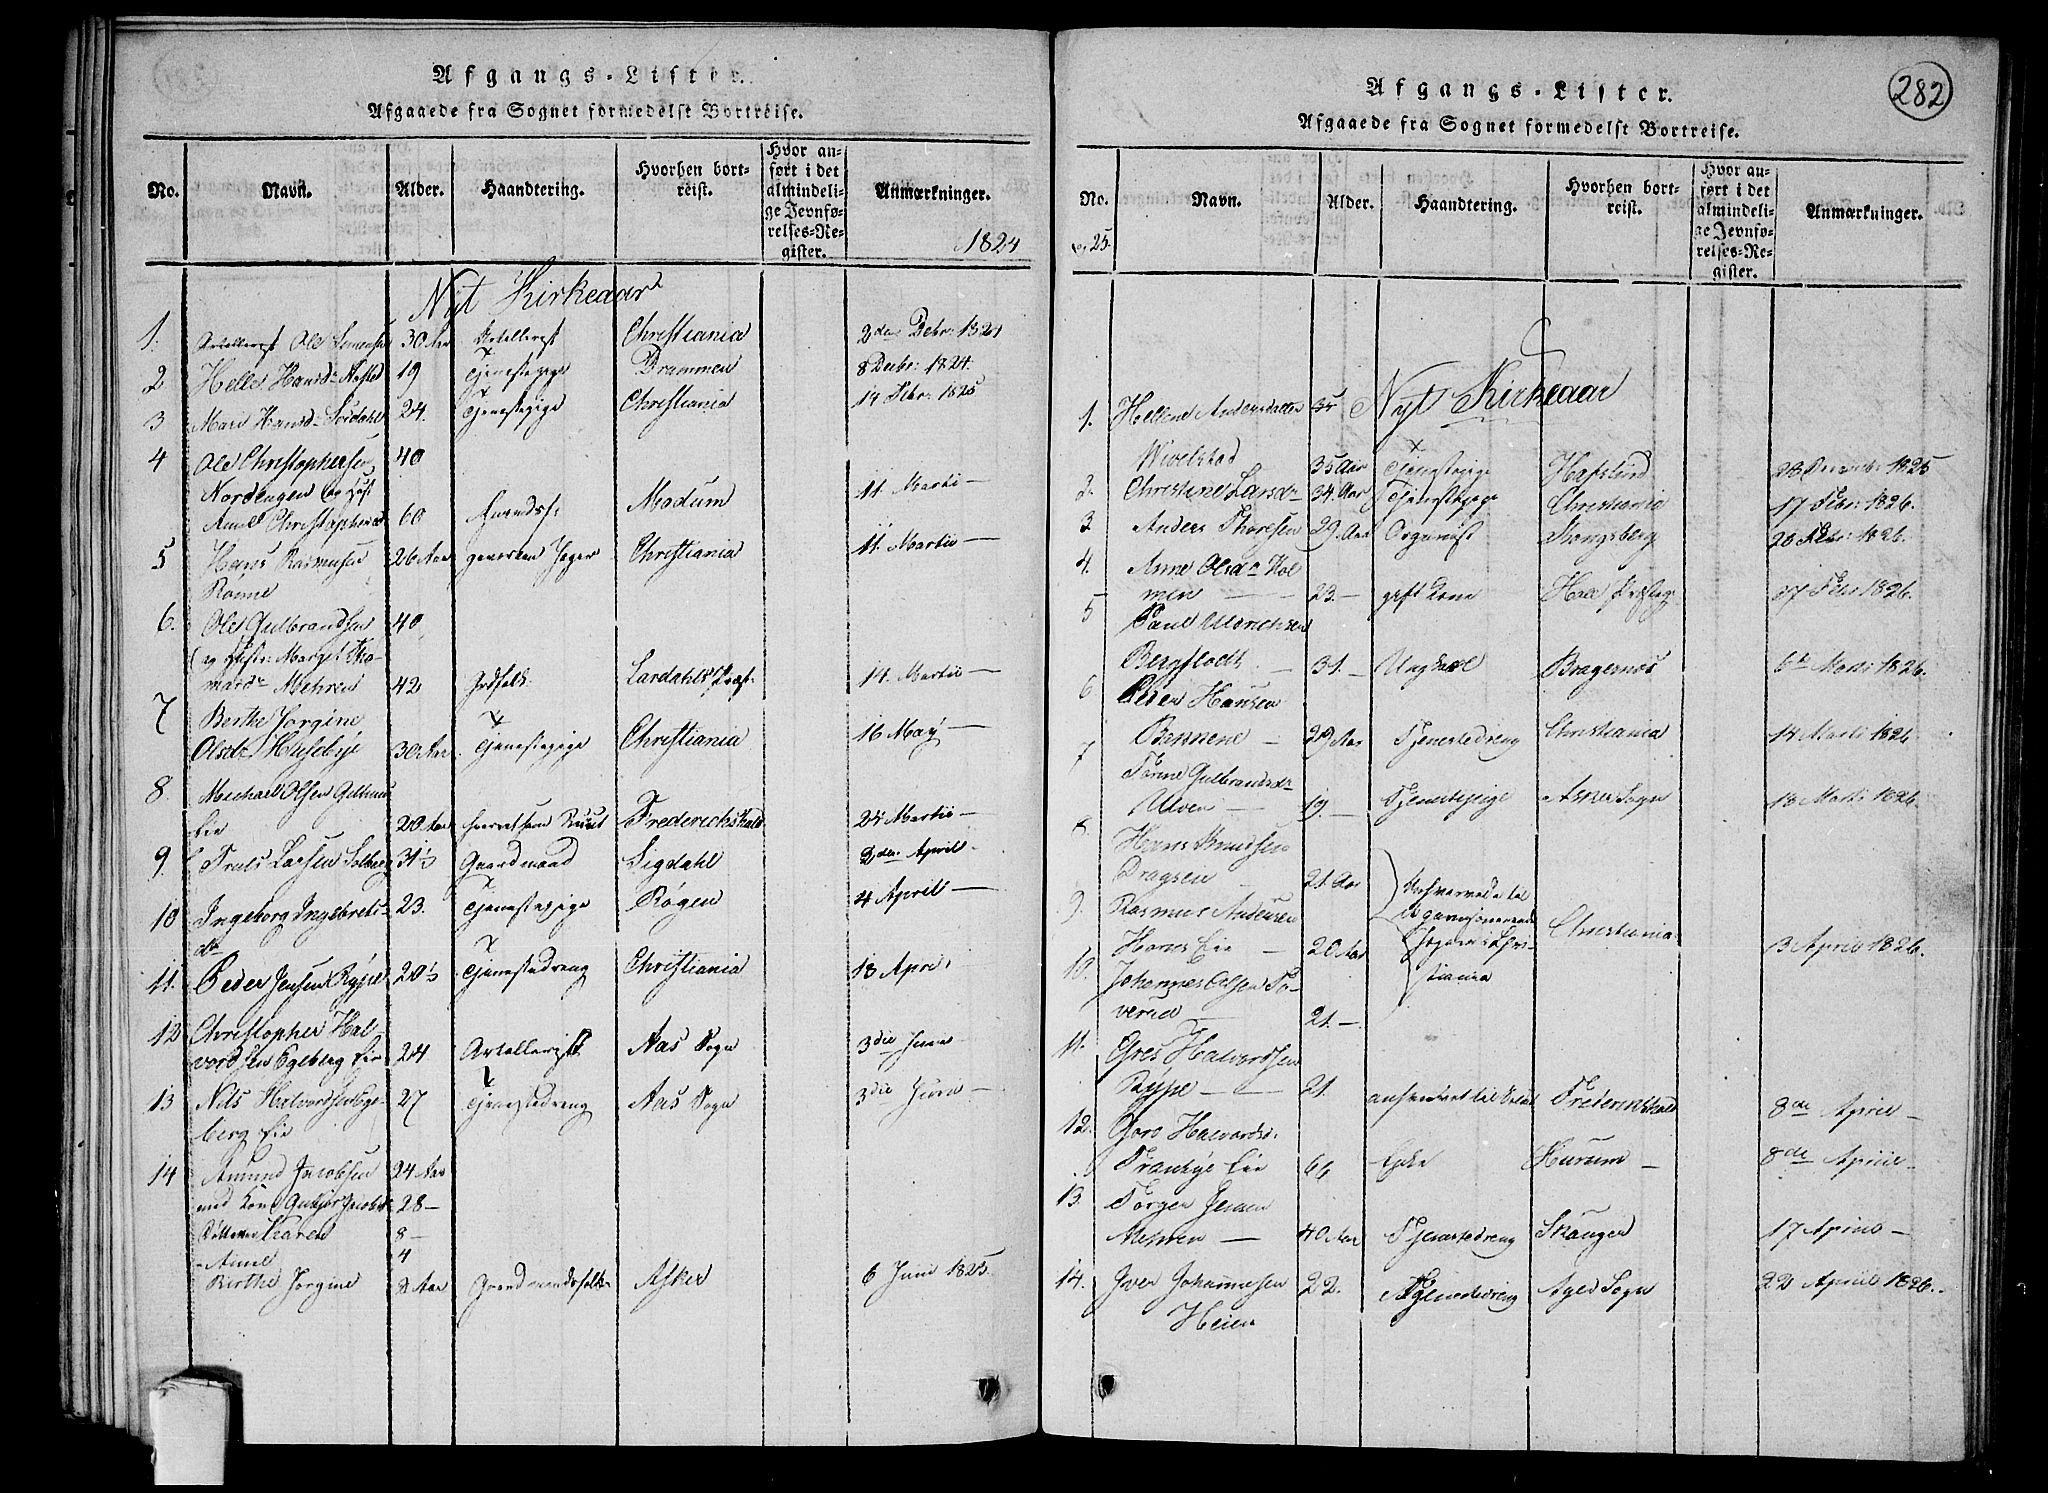 Afgangs-Lister.
Afgaaede fra Sognet formedelst Bortreise.
No. Navn. Alder. Haandtering. Hvorhen bortreist. Hvor anført i det almindelige Jevnførelses-Register. Anmærkninger.
1824
Nyt Kirkeaar
1. Ole 30 Aar Artellerist Christiania 2den Debr: 1824
2 Helle Hansdr 19 Tjenestepige Drammen 8 Decbr: 1824.
3 Mari Hansdr Sørdahl 24. Tjenestepige Christiania 14 Febr: 1825
4 Ole Christophersen 40
Nordengen og
Anne Christophersd 60 Modum 11 Martii —
5 Hans Rasmusen 26 Aar geworben Jæger Christiania 11. Martii —
Rønne
6. Ole Gulbrandsen 40
og Margit Tho-
marsdr Mehren 42 Lardahls Præst. 14. Martii —
7 Berthe Jørgine
Olsdr Huseby 30 Aar. Tjenestepige Christiania 16 May —
8. Michael Olsen
Eie 20 Aar Frederichshald 24 Martii —
9. Truls Larsen Solberg 31½ Gaardmand Sigdahl 2den April —
10 Ingeborg Ingebrets- 23. Tjenestepige Røgen 4 April —
dr
11. Peder Jensen Rype 20½ Tjenestedreng Christiania 13 April
12 Christopher Hal-
vordsen Egeberg Eie 24 Artellerist Aas Sogn 3die Juni
13 Nils Halvordsen Ege- 27 Tjenestedreng Aas Sogn 3die Juni —
berg Eie
14 Amund Jacobsen 24 Aar
med Kone 28 —
Karen 8 —
Anne 4
Berthe Jørgine 2 Aar Gaardmandsfolk Asker 6 Juni 1825.
282
Afgangs-Lister.
Afgaaede fra Sognet formedelst Bortreise.
No. Navn. Alder. Haandtering. Hvorhen bortreist. Hvor anført i det almindelige Jevnførelses-Register. Anmærkninger.
25.
Nyt Kirkeaar
1. Hellene Andersdatter 35
Wivelstad 35 Aar Tjenestepige Hafslund 1825
2. Christine Larsdr 34. Aar Tjenestepige Christiania 17 Febr: 1826.
3 Anders Thoresen 29. Aar Organist Kongsberg 20 Febr: 1826.
4. Anne Olsdr Hol
men 23. — gift Kone 27 Febr 1826.
5 Paul Ulrichsen
Bergflødt — 31. — Ungkarl Bragernes 6te Marti 1826.
6 Peder Hansen
29 Aar Tjenestedreng Christiania 14 Marti 1826
7 Torine Gulbrandsdr
Ulven — 19. — Tjenestepige Asker Sogn 18 Marti 1826.
8 Hans Knudsen
Dragsen 21. Aar
9. Rasmus Andersen
Eie — 20 Aar Christiania 3 April 1826.
10. Johannes Olsen To-
verud 21. —
11. Halvordsen
Rype — 21. Frederikshald 8de April —
12. Goro Halvordsd.
Eie 66 Enke Hurum — 8de April —
13. Torger Jensen
Mehren — 40 Aar Tjenestedreng Skauger 17 April —
14. Iver Johannesen 22. Tjenestedreng Sogn 22 April 1826.
Heien